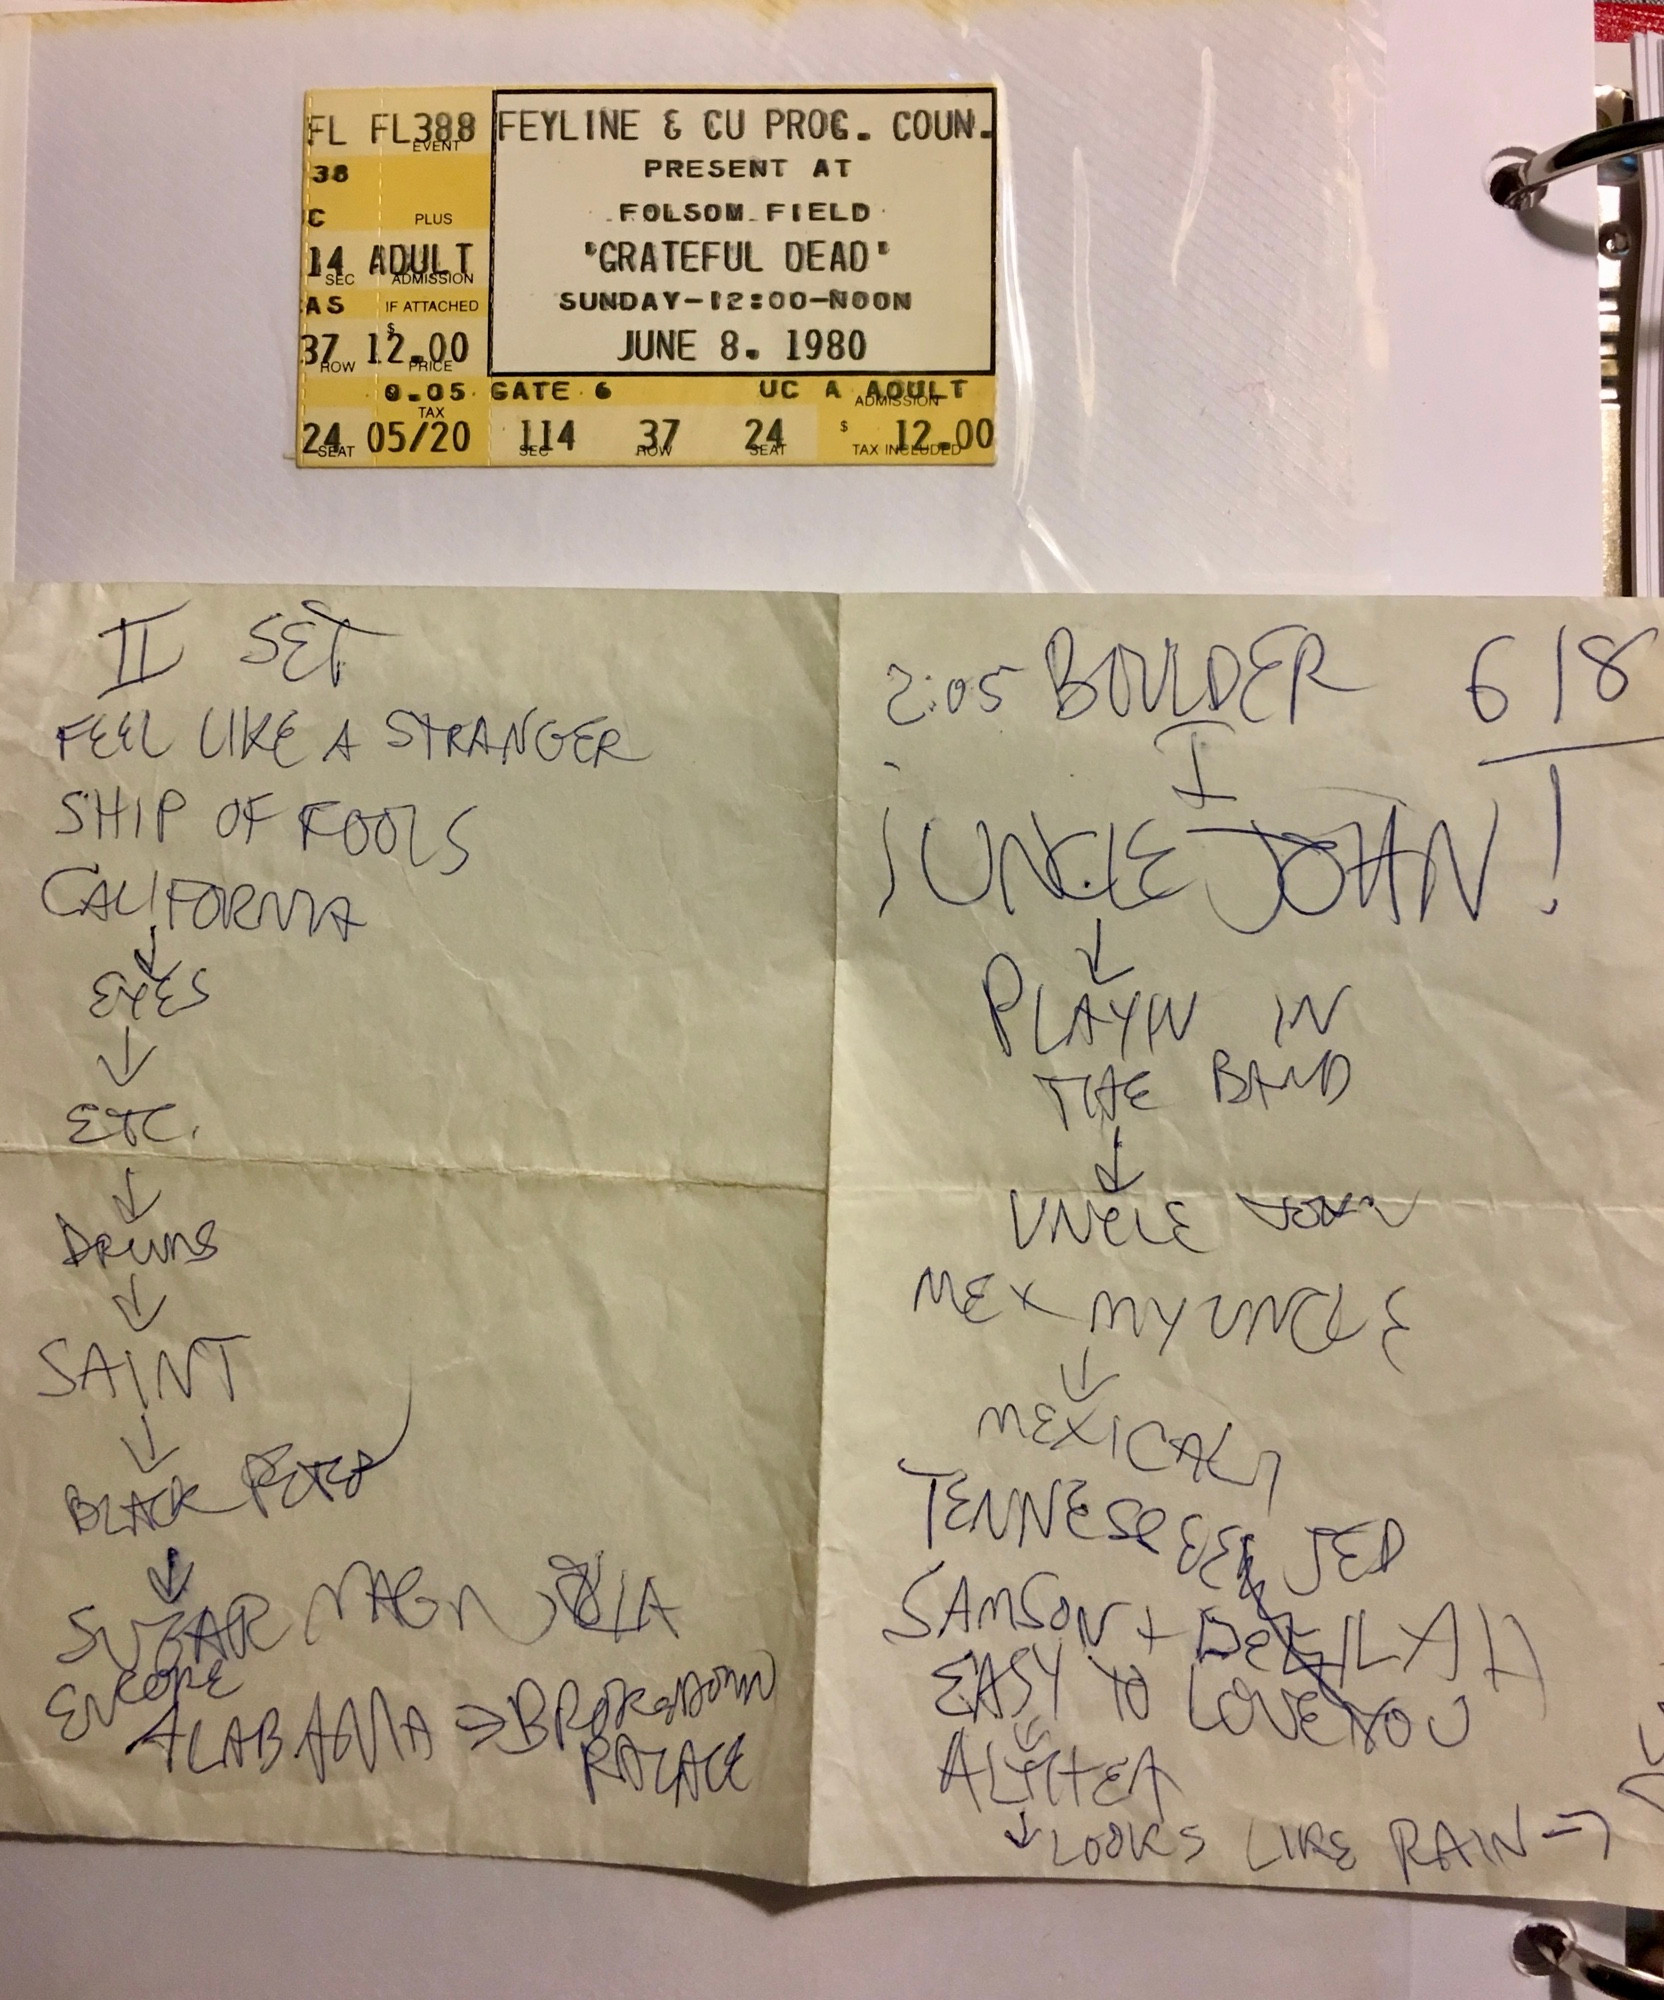 FL FL388 FEYLINE & CU PROG. COUN.
EVENT
38 PRESENT AT
C PLUS FOLSOM FIELD
14 ADULT "GRATEFUL DEAD"
SEC ADMISSION
AS IF ATTACHED SUNDAY-12:00-NOON
37 $ 12.00 JUNE 8. 1980
ROW PRICE
0.05 GATE 6 UC A ADULT
TAX ADMISSION
24 05/20 114 37 24 $ 12.00
SEAT SEC ROW SEAT TAX INCLUDED
II SET
FEEL LIKE A STRANGER
SHIP OF FOOLS
CALIFORNIA
↓
EYES
↓
ETC.
↓
DRUMS
↓
SAINT
↓
BLACK PETER
↓
SUGAR MAGNOLIA
ENCORE
ALABAMA => BROKEDOWN
PALACE
2:05 BOULDER 6/8
I
¡UNCLE JOHN!
↓
PLAYIN IN
THE BAND
↓
UNCLE JOHN
MEX MY UNCLE
↓
MEXICALI
TENNESSEE JED
SAMSON + DELILAH
EASY TO LOVE YOU
ALTHEA
↓ LOOKS LIKE RAIN →